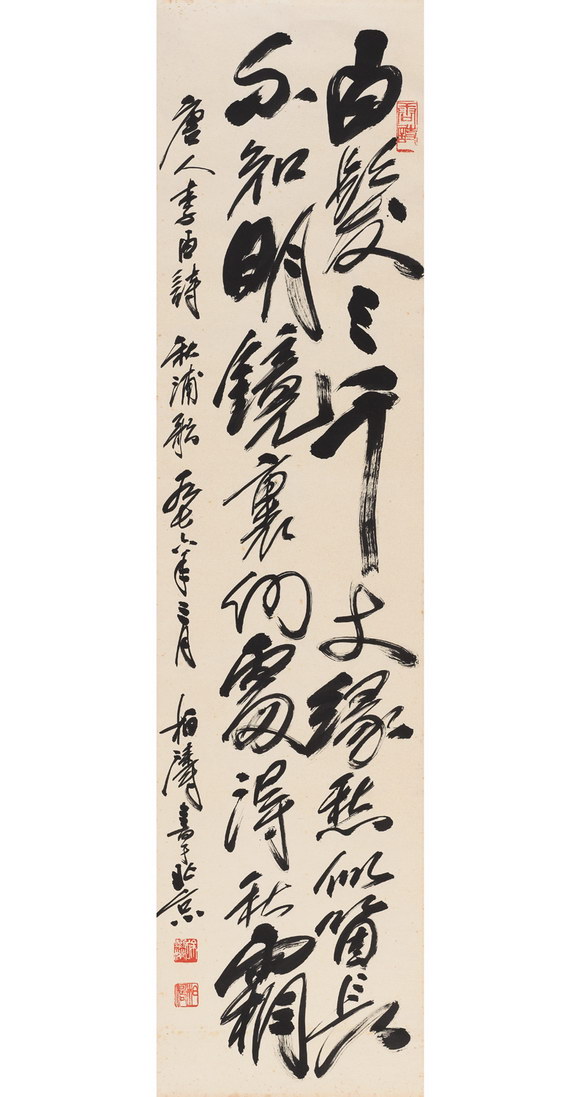 白髮三千丈緣愁似箇長
不知明鏡裏何處得秋霜
唐人李白詩秋浦歌一九七六年三月柏濤書于北京